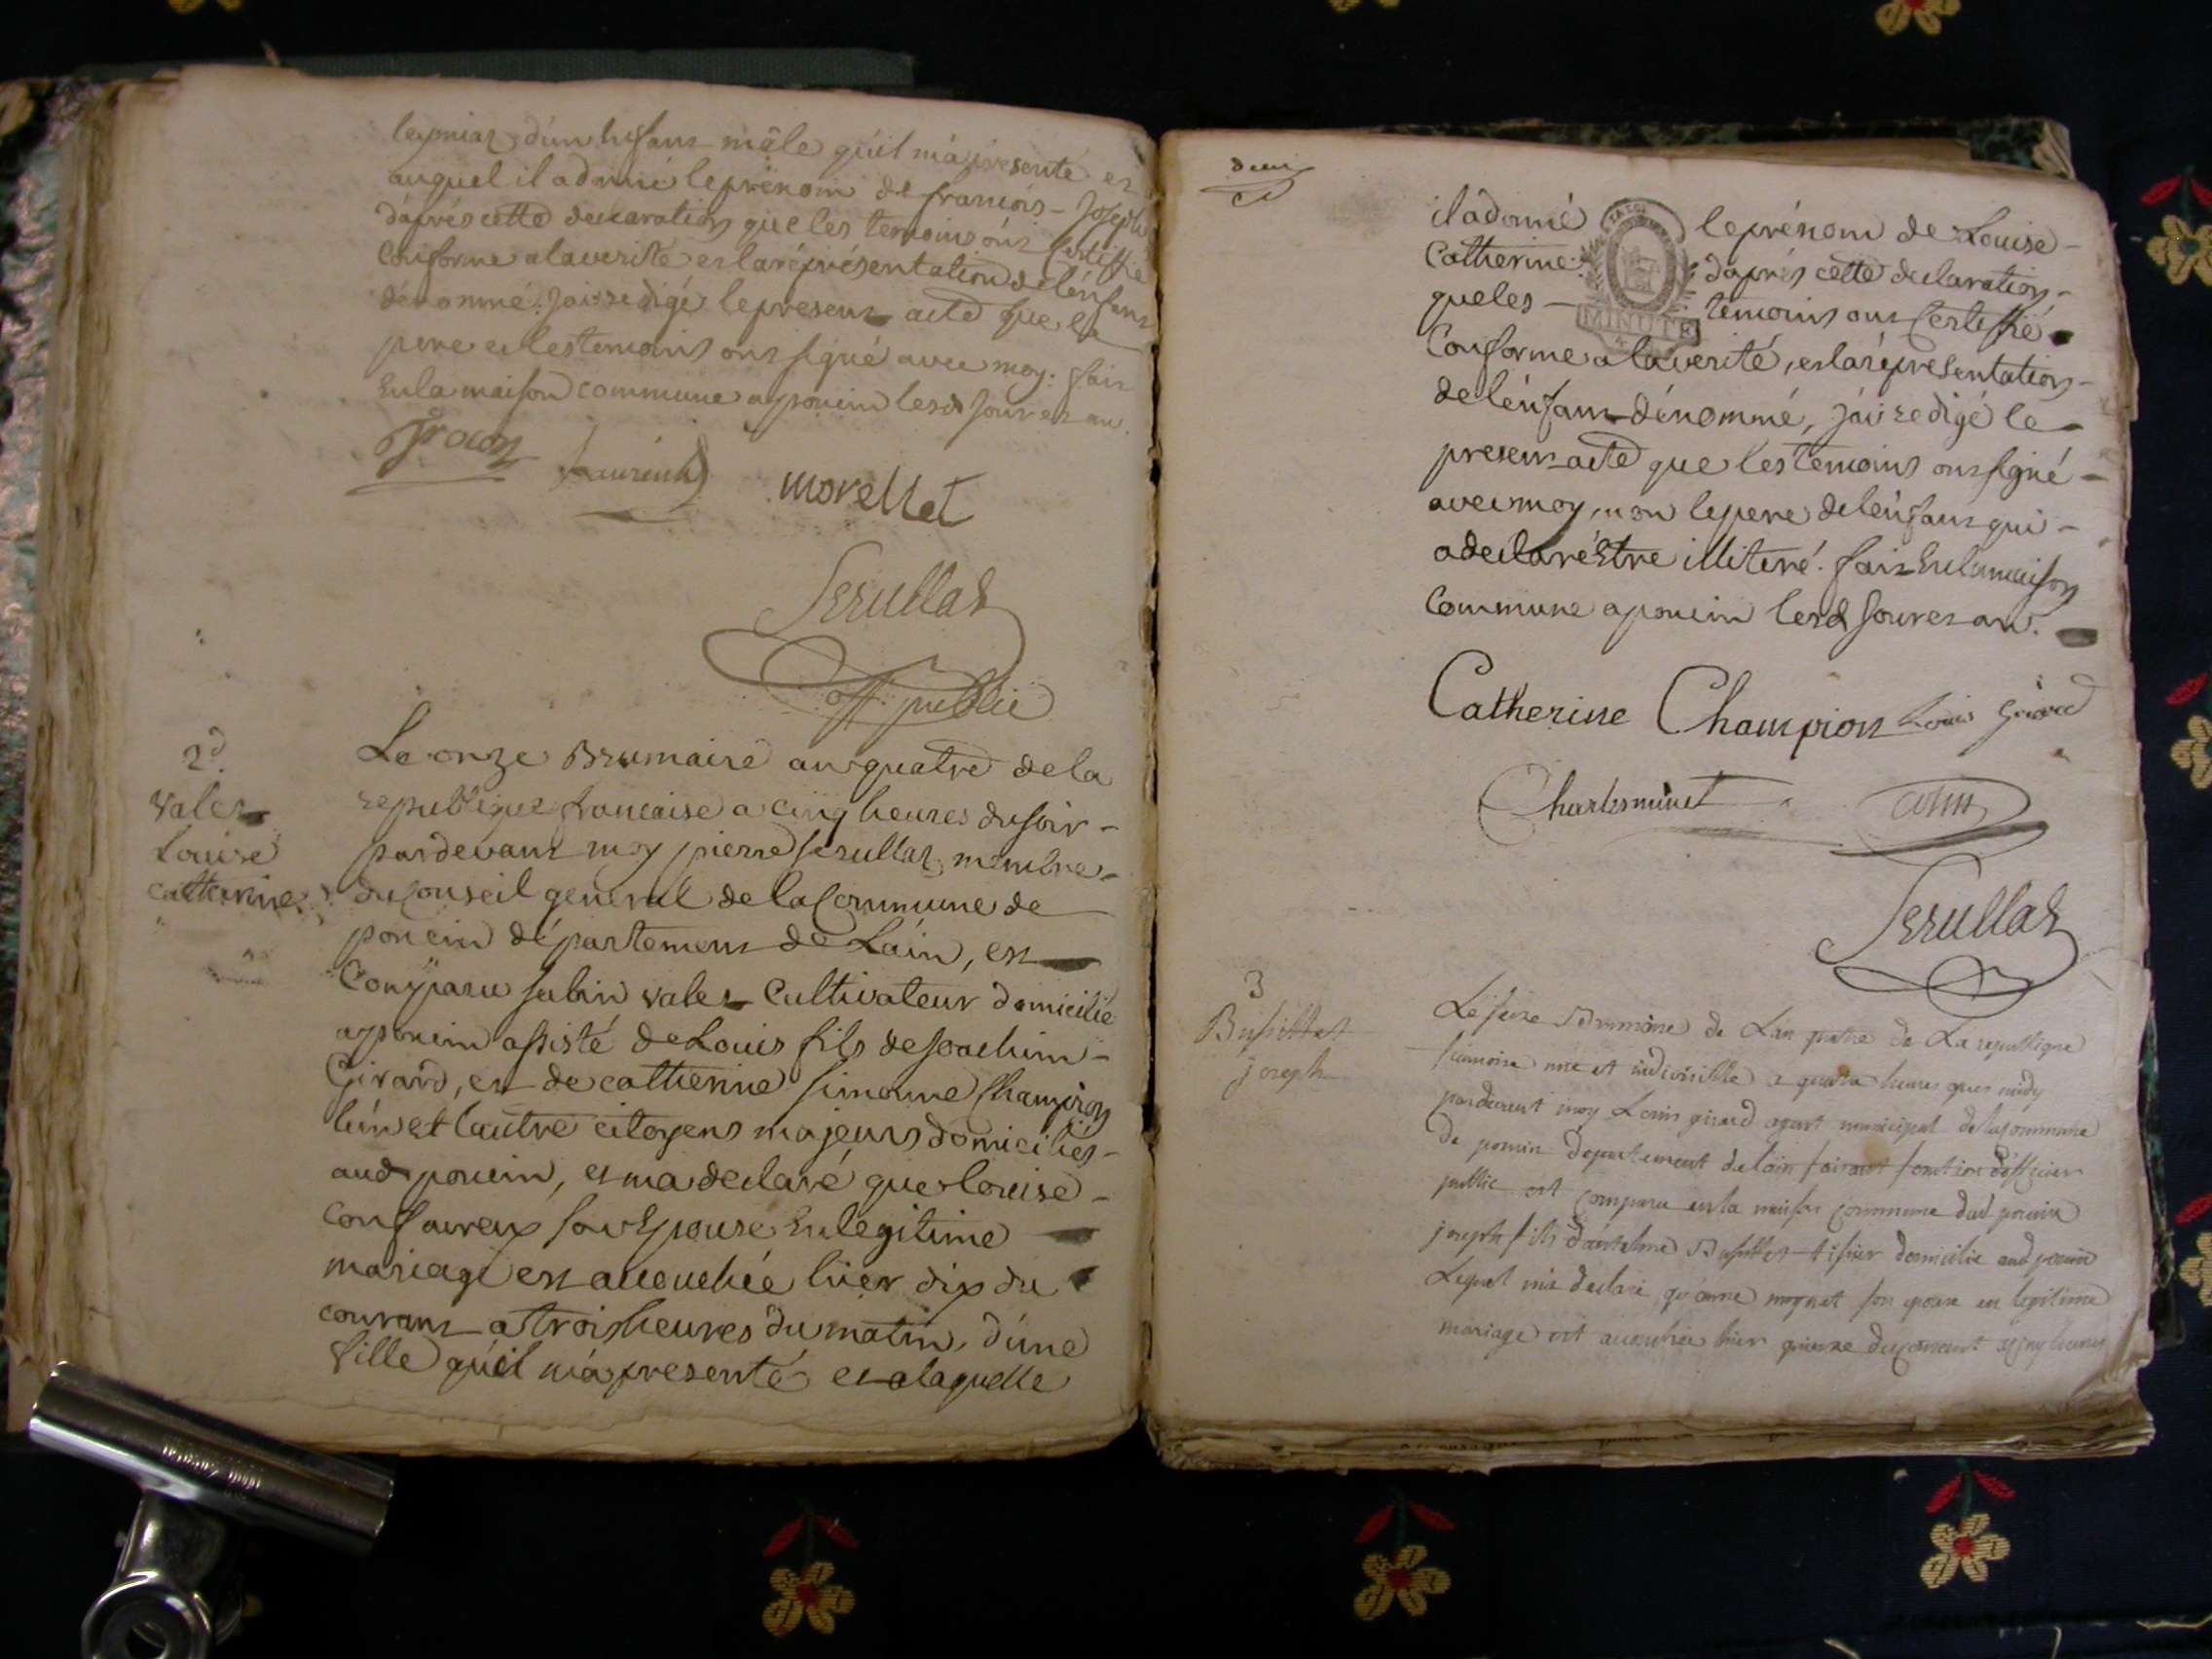 d'un Enfant mâle qu'il m'a presenté et
auquel il a donné le prénom de françois - Joseph
d'aprés cette declaration que les temoins ont Certiffié
Conforme a la verité et la réprésentation de l'énfant
dénommé. J'ai redigé le present acte que le
pere et les temoins ont signé avec moy. fait
En la maison commune a poncin lesd. Jour et an.
morellet
Serullaz
off. public
2d.
Valet
Louise
Catherine
Le onze Brumaire an quatre de la
republique francaise a cinq heures du soir -
pardevant moy pierre Serullaz membre -
du Conseil general de la Commune de
poncin département de L'ain, est
Comparu Sabin valet Cultivateur domicilié
a poncin assisté de Louis fils de Joachim -
Girard, et de catherine Simonne Champion
l'un et l'autre citoyens majeurs domiciliés -
aud. poncin, et m'a declaré que Louise -
son Epouse En legitime
mariage est accouchée hier dix du
courant a trois heures du matin, d'une
fille qu'il m'a presenté et a laquelle
deux
il a donné le prénom de Louise -
Catherine. d'aprés cette declaration -
que les - temoins ont Certiffié
MINUTE
Conforme a la verité, et la réprésentation -
de l'énfant dénommé, j'ai redigé le -
present acte que les temoins ont signé -
avec moy, non le pere de l'énfant qui -
a declaré Etre illiteré. fait En la maison
Commune a poncin lesd. Jour et an.
Catherine Champion Louis Girard
Charles minet
Serullaz
3
Busillet
joseph
Le seize Brumaire de L'an quatre de La republique
francaise une et indivisible a quatre heures apres midy
pardevant moy Louis girard agent municipal de la Commune
de poncin departement de l'ain faisant fonction d'officier
public est comparu en la maison commune dud. poncin
joseph fils d'antelme Busillet tisier domicilie aud. poncin
Lequel m'a declaré qu'anne moynet son epouse en legitime
mariage est accouchée hier quinze du courant a cinq heures